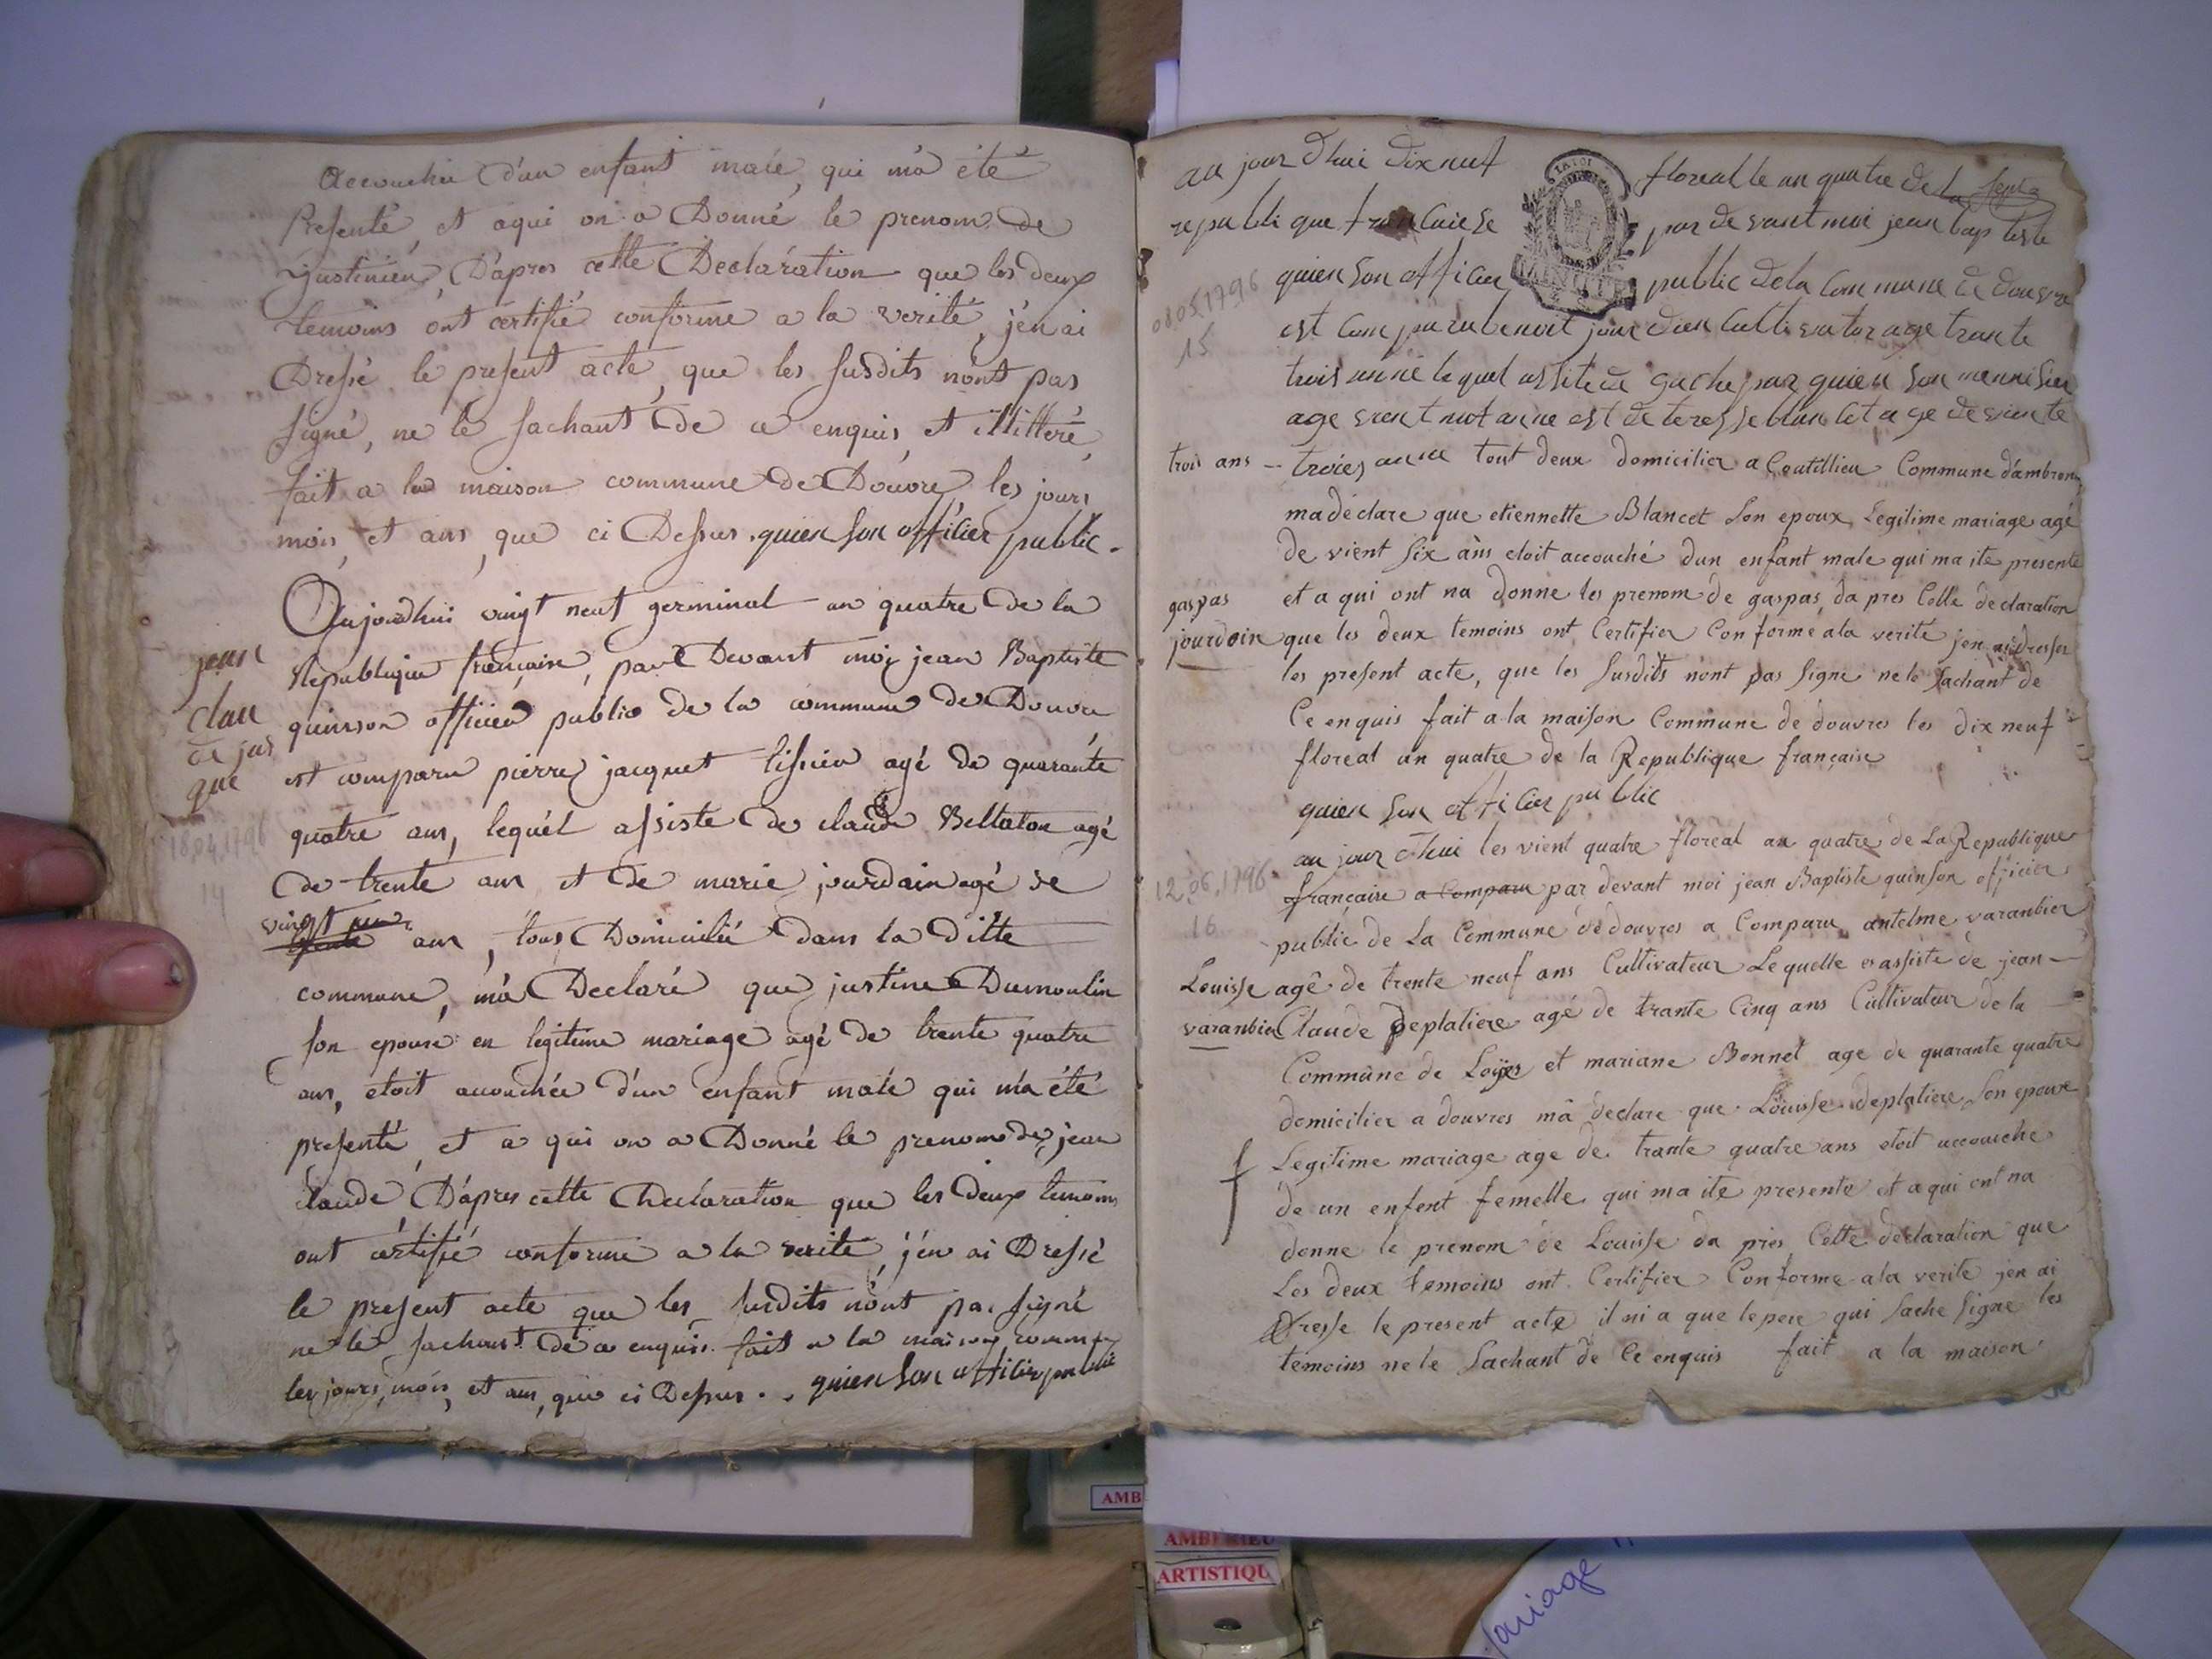 accouchée d'un enfant male, qui m'a été
Presenté, et aqui on a Donné le prenom de
justinien, D'apres cette Declaration que les deux
temoins ont certifié conforme a la verité, j'en ai
Dressé le present acte, que les susdits n'ont pas
signé, ne le sachant de ce enquis, et illitteré,
fait a la maison commune de Douvre, les jours
mois, et ans, que ci Dessus. quienson officier public.
Aujourdhui vingt neuf germinal an quatre de la
jean
Republique française, par Devant moi jean Baptiste
clau
quinson officier public de la commune de Douvre
de jas
que
est comparu pierre jacquet tissier agé de quarante
18.04.1796
quatre ans, lequél assiste de claude Beltaton agé
14
de trente ans et de marie jourdain agé de
vingt un
trente ans, tous Domicilié dans la ditte
commune, m'a Declaré que justine Dumoulin
son epouse en legitime mariage agé de trente quatre
ans, etoit accouchée d'un enfant male qui m'a été
presenté, et a qui on a Donné le prenom de jean
claude D'apres cette Declaration que les deux temoins
ont certifié conforme a la verité, j'en ai Dressé
le present acte que les susdits n'ont pas signé
ne le sachant de ce enquis. fait a la maison comm
les jours, mois, et ans, que ci Dessus.. quienson officier public
au jour dhui dix neuf floreal le an quatre de la
republi que francaiese par de vant moi jean bap tiste
08.05.1796
quien son officier public de la commune de douvre
15
est comparu benoit jour dien cultivator age trante
trois anné le quel assite de gachepar quien son mennisier
age vient not anne est de teresse blanlot age de viente
trois ans - troies anne tout deux domicilier a Coutillieu Commune d'ambronay
madéclare que etiennette Blancet son epoux Legitime mariage agé
de vient six ans etoit accouché dun enfant male qui ma ite presente
gaspas
et a qui ont na donne les prenom de gaspas, da pres Cette declaration
jourdain
que les deux temoins ont Certifier Conforme ala verite jen ai dresser
les present acte, que les susdits nont pas signe ne le sachant de
Ce enquis fait a la maison Commune de douvres les dix neuf
floreal an quatre de la Republique française
quien son officier public
au jour dhui les vient quatre floreal an quatre de La Republique
12.06.1796
française a comparu par devant moi jean Baptiste quinson officier
16
public de La Commune de douvres a Comparu antelme varanbier
Louisse
agé de trente neuf ans Cultivateur Le quelle es assiste de jean
varanbier
Claude Deplatiere agé de trante Cinq ans Cultivateur de la
Commune de Loyes et mariane Bonnet age de quarante quatre
domicilier a douvres mâ declare que Louisse deplatiere son epouxe
Legitime mariage age de trante quatre ans etoit accouche
de un enfent femelle qui ma ite presente et a qui ont na
donne le prenom de Louisse da pres Cette declaration que
Les deux temoins ont Certifier Conforme ala verite jen ai
Dresse le present acte il ni a que le pere qui sache signe les
temoins ne le sachant de Ce enquis fait a la maison
AMB
AMBERIEU
ARTISTIQU
Mariage